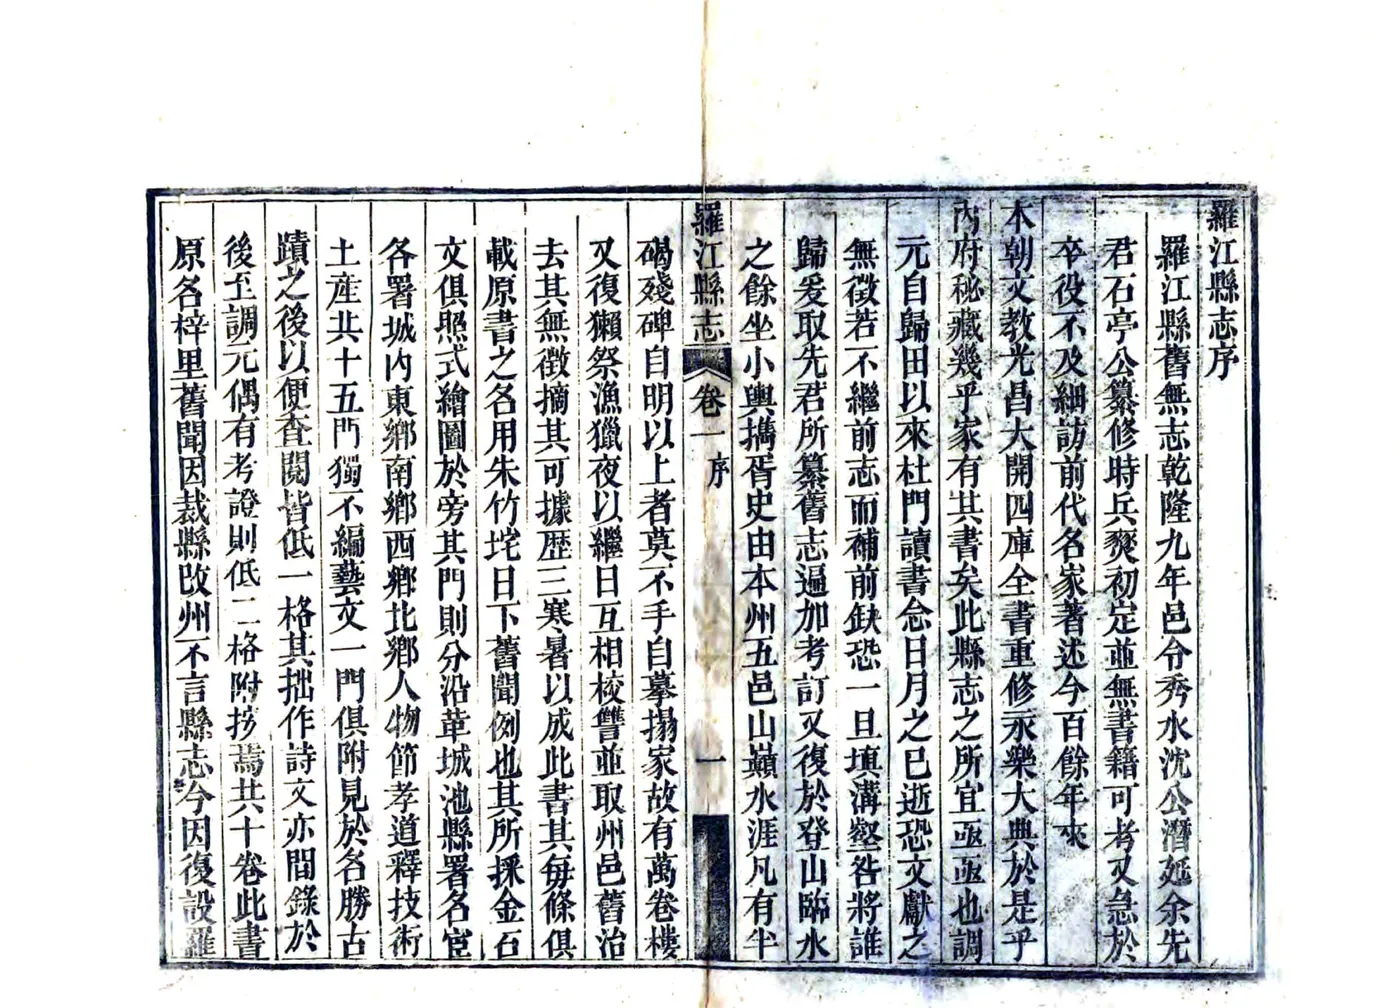 羅江縣志序
羅江縣舊無志乾隆九年邑令秀水沈公潛延余先
君石亭公纂修時兵燹初定並無書籍可考又急於
卒役不及細訪前代名家著述今百餘年來
本朝文教光昌大開四庫全書重修永樂大典於是乎
內府秘藏幾乎家有其書矣此縣志之所宜亟亟也調
元自歸田以來杜門讀書念日月之已逝恐文獻之
無徵若不繼前志而補前缺恐一旦填溝壑咎將誰
歸爰取先君所纂舊志遍加考訂又復於登山臨水
之餘坐小輿攜胥史由本州五邑山巔水涯凡有半
羅江縣志 卷一 序 一
碣殘碑自明以上者莫不手自摹搨家故有萬卷樓
又復獺祭漁獵夜以繼日互相校讐並取州邑舊治
去其無徵摘其可據歷三寒暑以成此書其每條俱
載原書之名用朱竹垞日下舊聞例也其所採金石
文俱照式繪圖於旁其門則分沿革城池縣署名宦
各署城內東鄉南鄉西鄉北鄉人物節孝道釋技術
土產共十五門獨不編藝文一門俱附見於名勝古
蹟之後以便查閱皆低一格其拙作詩文亦間錄於
後至調元偶有考證則低二格附抄焉共十卷此書
原名梓里舊聞因裁縣改州不言縣志今因復設羅